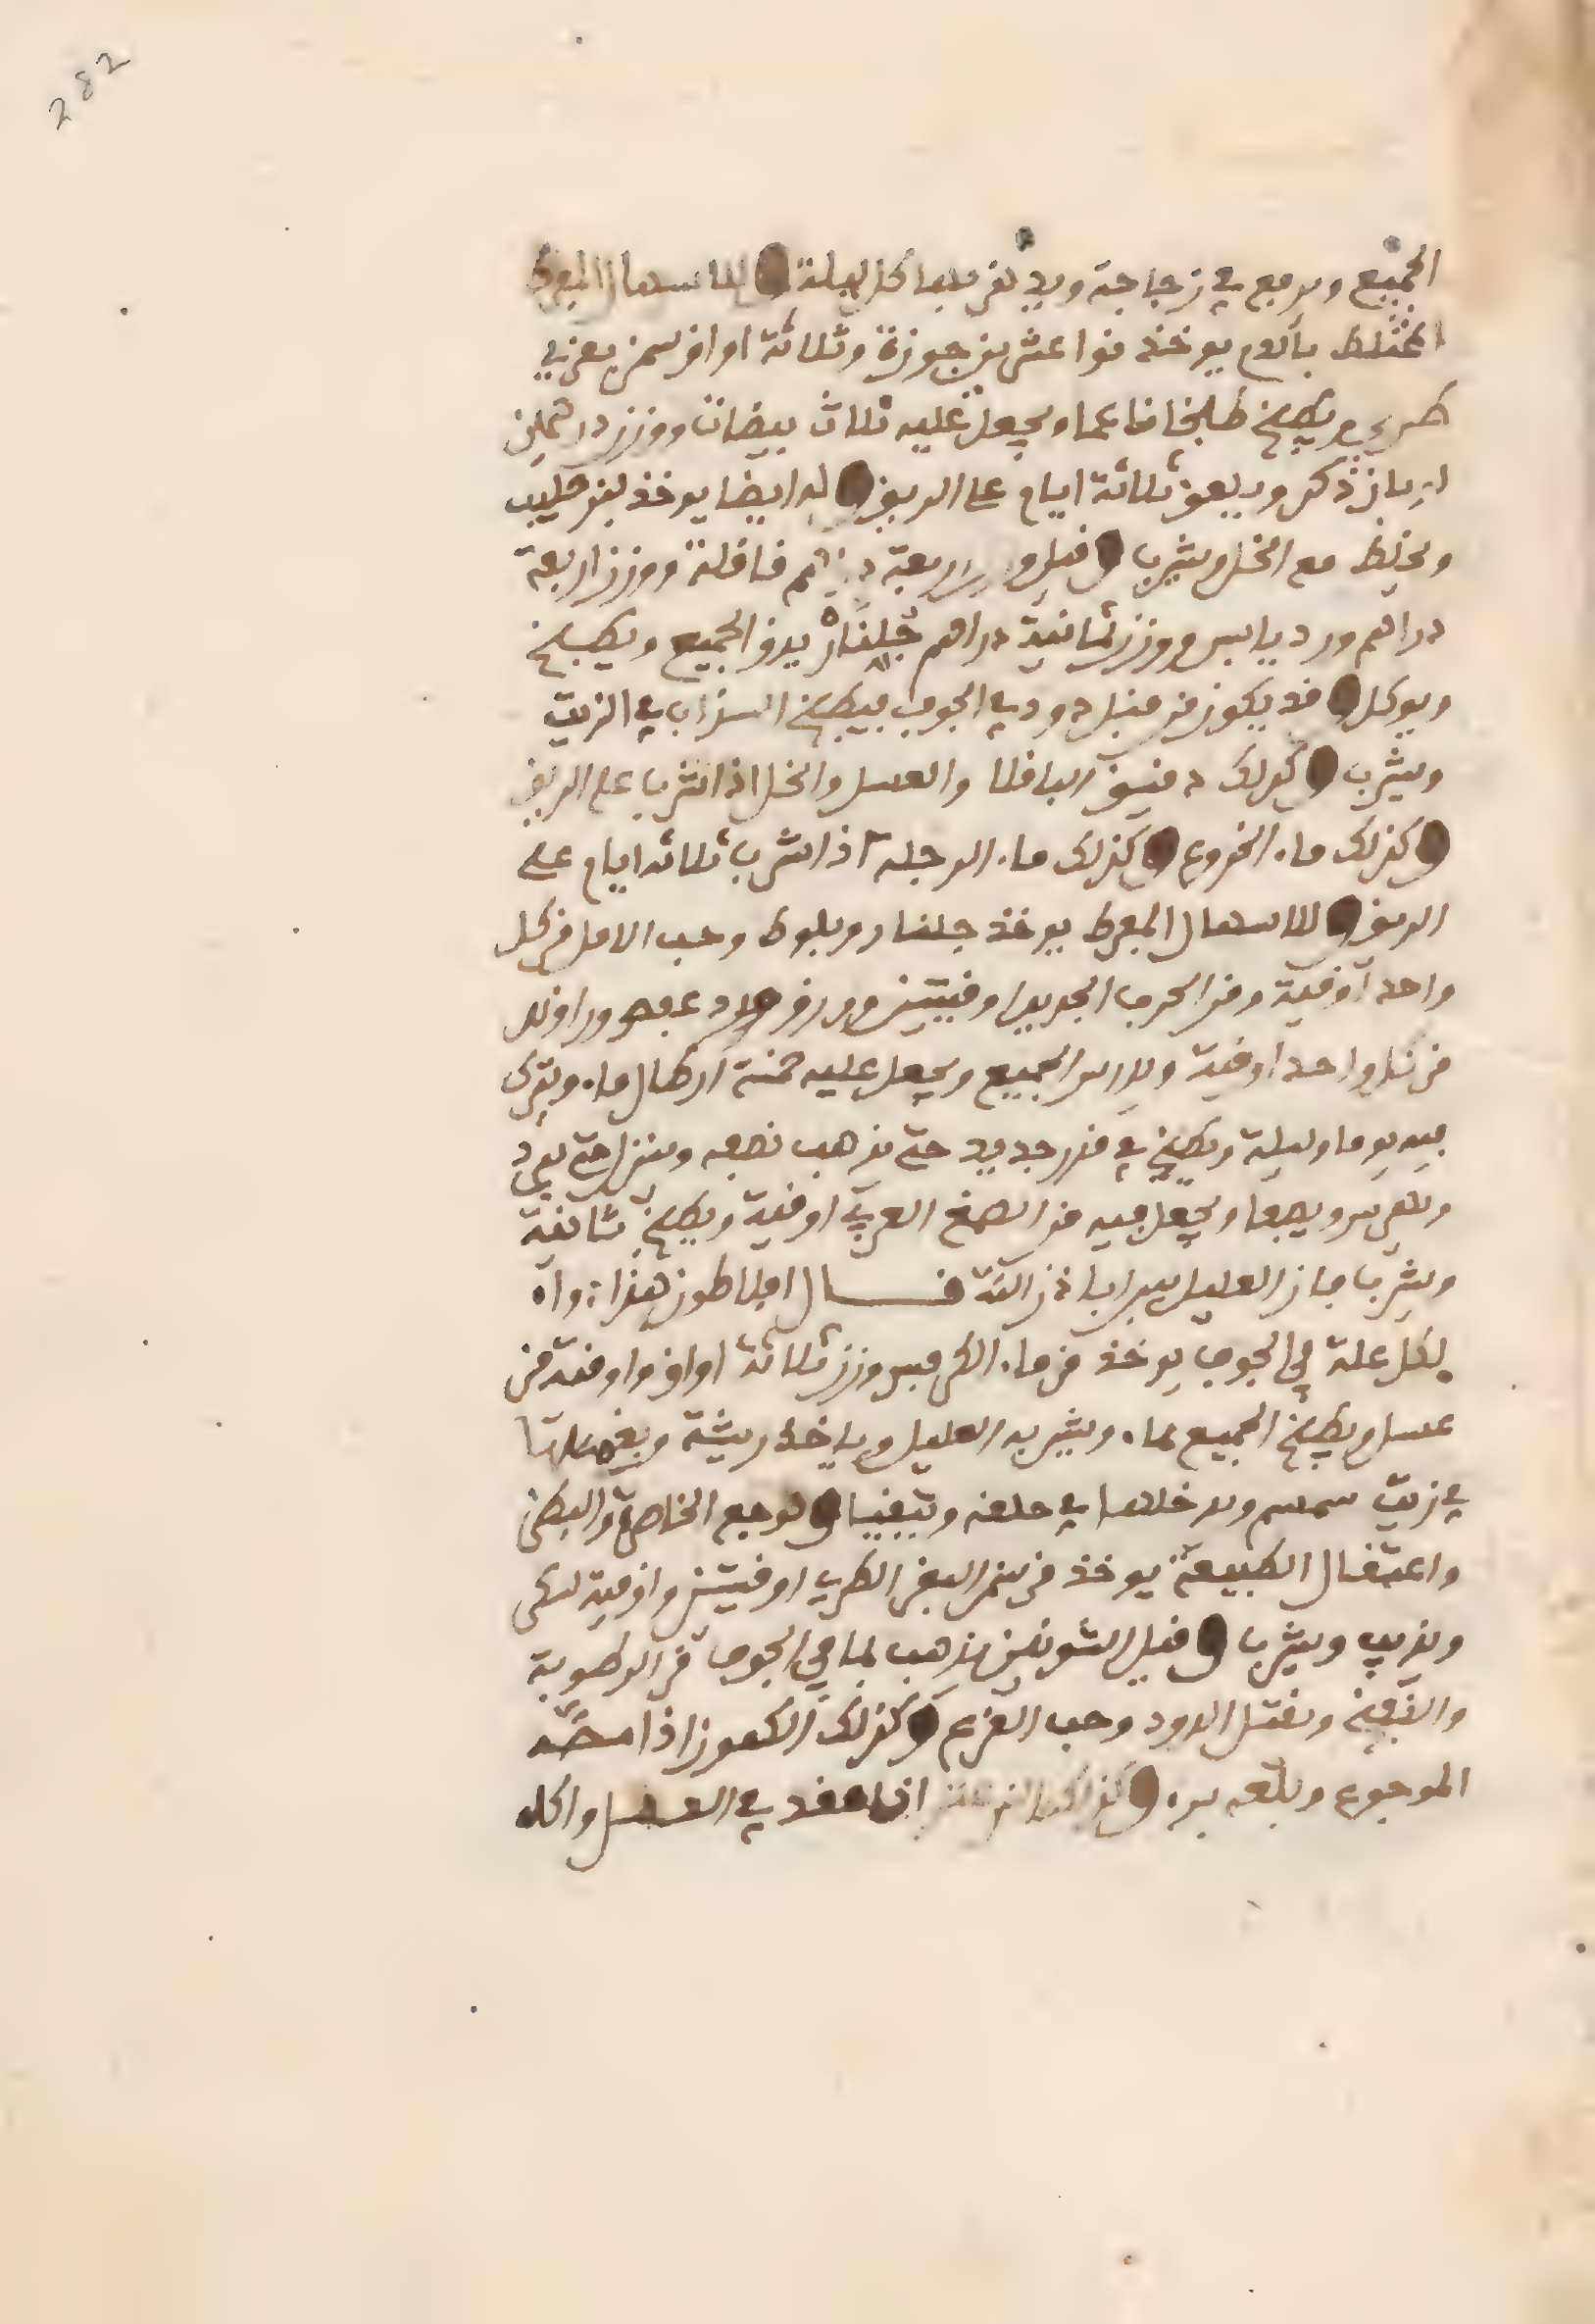 282
الجميع ويرفع في زجاجة ويدهن بها كل ليلة للاسهال المفرط
المختلط بالدم يوخذ نوا عشرين جوزة وثلاثة اواق سمن بقري
طري ويطبخ طبخا ناعما ويجعل عليه ثلاث بيضات ووزن درهمين
لوبان ذكر ويلعق ثلاثة ايام على الريق له ايضا يوخذ لبن حليب
ويخلط مع الخل ويشرب وقيل اربعة دراهم قاقلة ووزن اربعة
دراهم ورد يابس ووزن ثمانية دراهم جلنار يدق الجميع ويطبخ
ويوكل قد يكون من قبل دود في الجوف فيطبخ السذاب في الزيت
ويشرب وكذلك دقيق الباقلا والعسل والخل اذا شرب على الريق
وكذلك ماء الخروع وكذلك ماء الرجلة اذا شرب ثلاثة ايام على
الريق للاسهال المفرط يوخذ جلنار وبلوط وحب الاس من كل
واحد اوقية ومن الخرب الجديد اوقيتين وورق عفص وراوند
من كل واحد اوقية ويدرس الجميع ويجعل عليه خمسة ارطال ماء ويترك
فيه يوما وليلة ويطبخ في قدر جديد حتى يذهب نصفه وينزل حتى يبرد
ويمرس ويصفا ويجعل فيه من الصمغ العربي اوقية ويطبخ ثانية
ويشرب فان العليل يبرا باذن الله قال افلاطون هذا دواء
لكل علة في الجوف يوخذ من ماء الكرفس وزن ثلاثة اواق واوقية من
عسل ويطبخ الجميع بماء ويشربه العليل وياخذ ريشة ويغمسها
في زيت سمسم ويدخلها في حلقه ويتقيا لوجع الخاصرة والبطن
واعتقال الطبيعة يوخذ من سمن البقر الطري اوقيتين واوقية سكر
ويذيب ويشرب وقيل الشونيز يذهب بما في الجوف من الرطوبة
والنفخ ويقتل الدود وحب القرع وكذلك الكمون اذا مضغه
الموجوع وبلعه بره وكذلك اذا عقد في العسل واكله